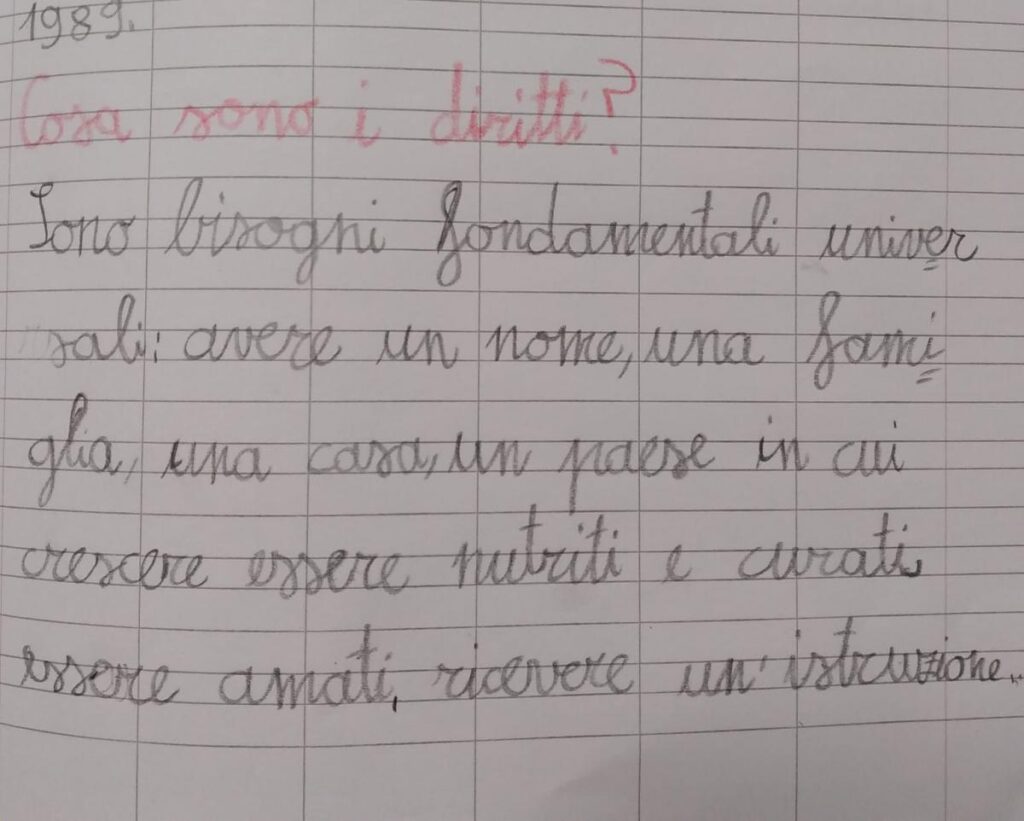 1989.
Cosa sono i diritti?
Sono bisogni fondamentali univer
sali: avere un nome, una fami
glia, una casa, un paese in cui
crescere essere nutriti e curati,
essere amati, ricevere un'istruzione..